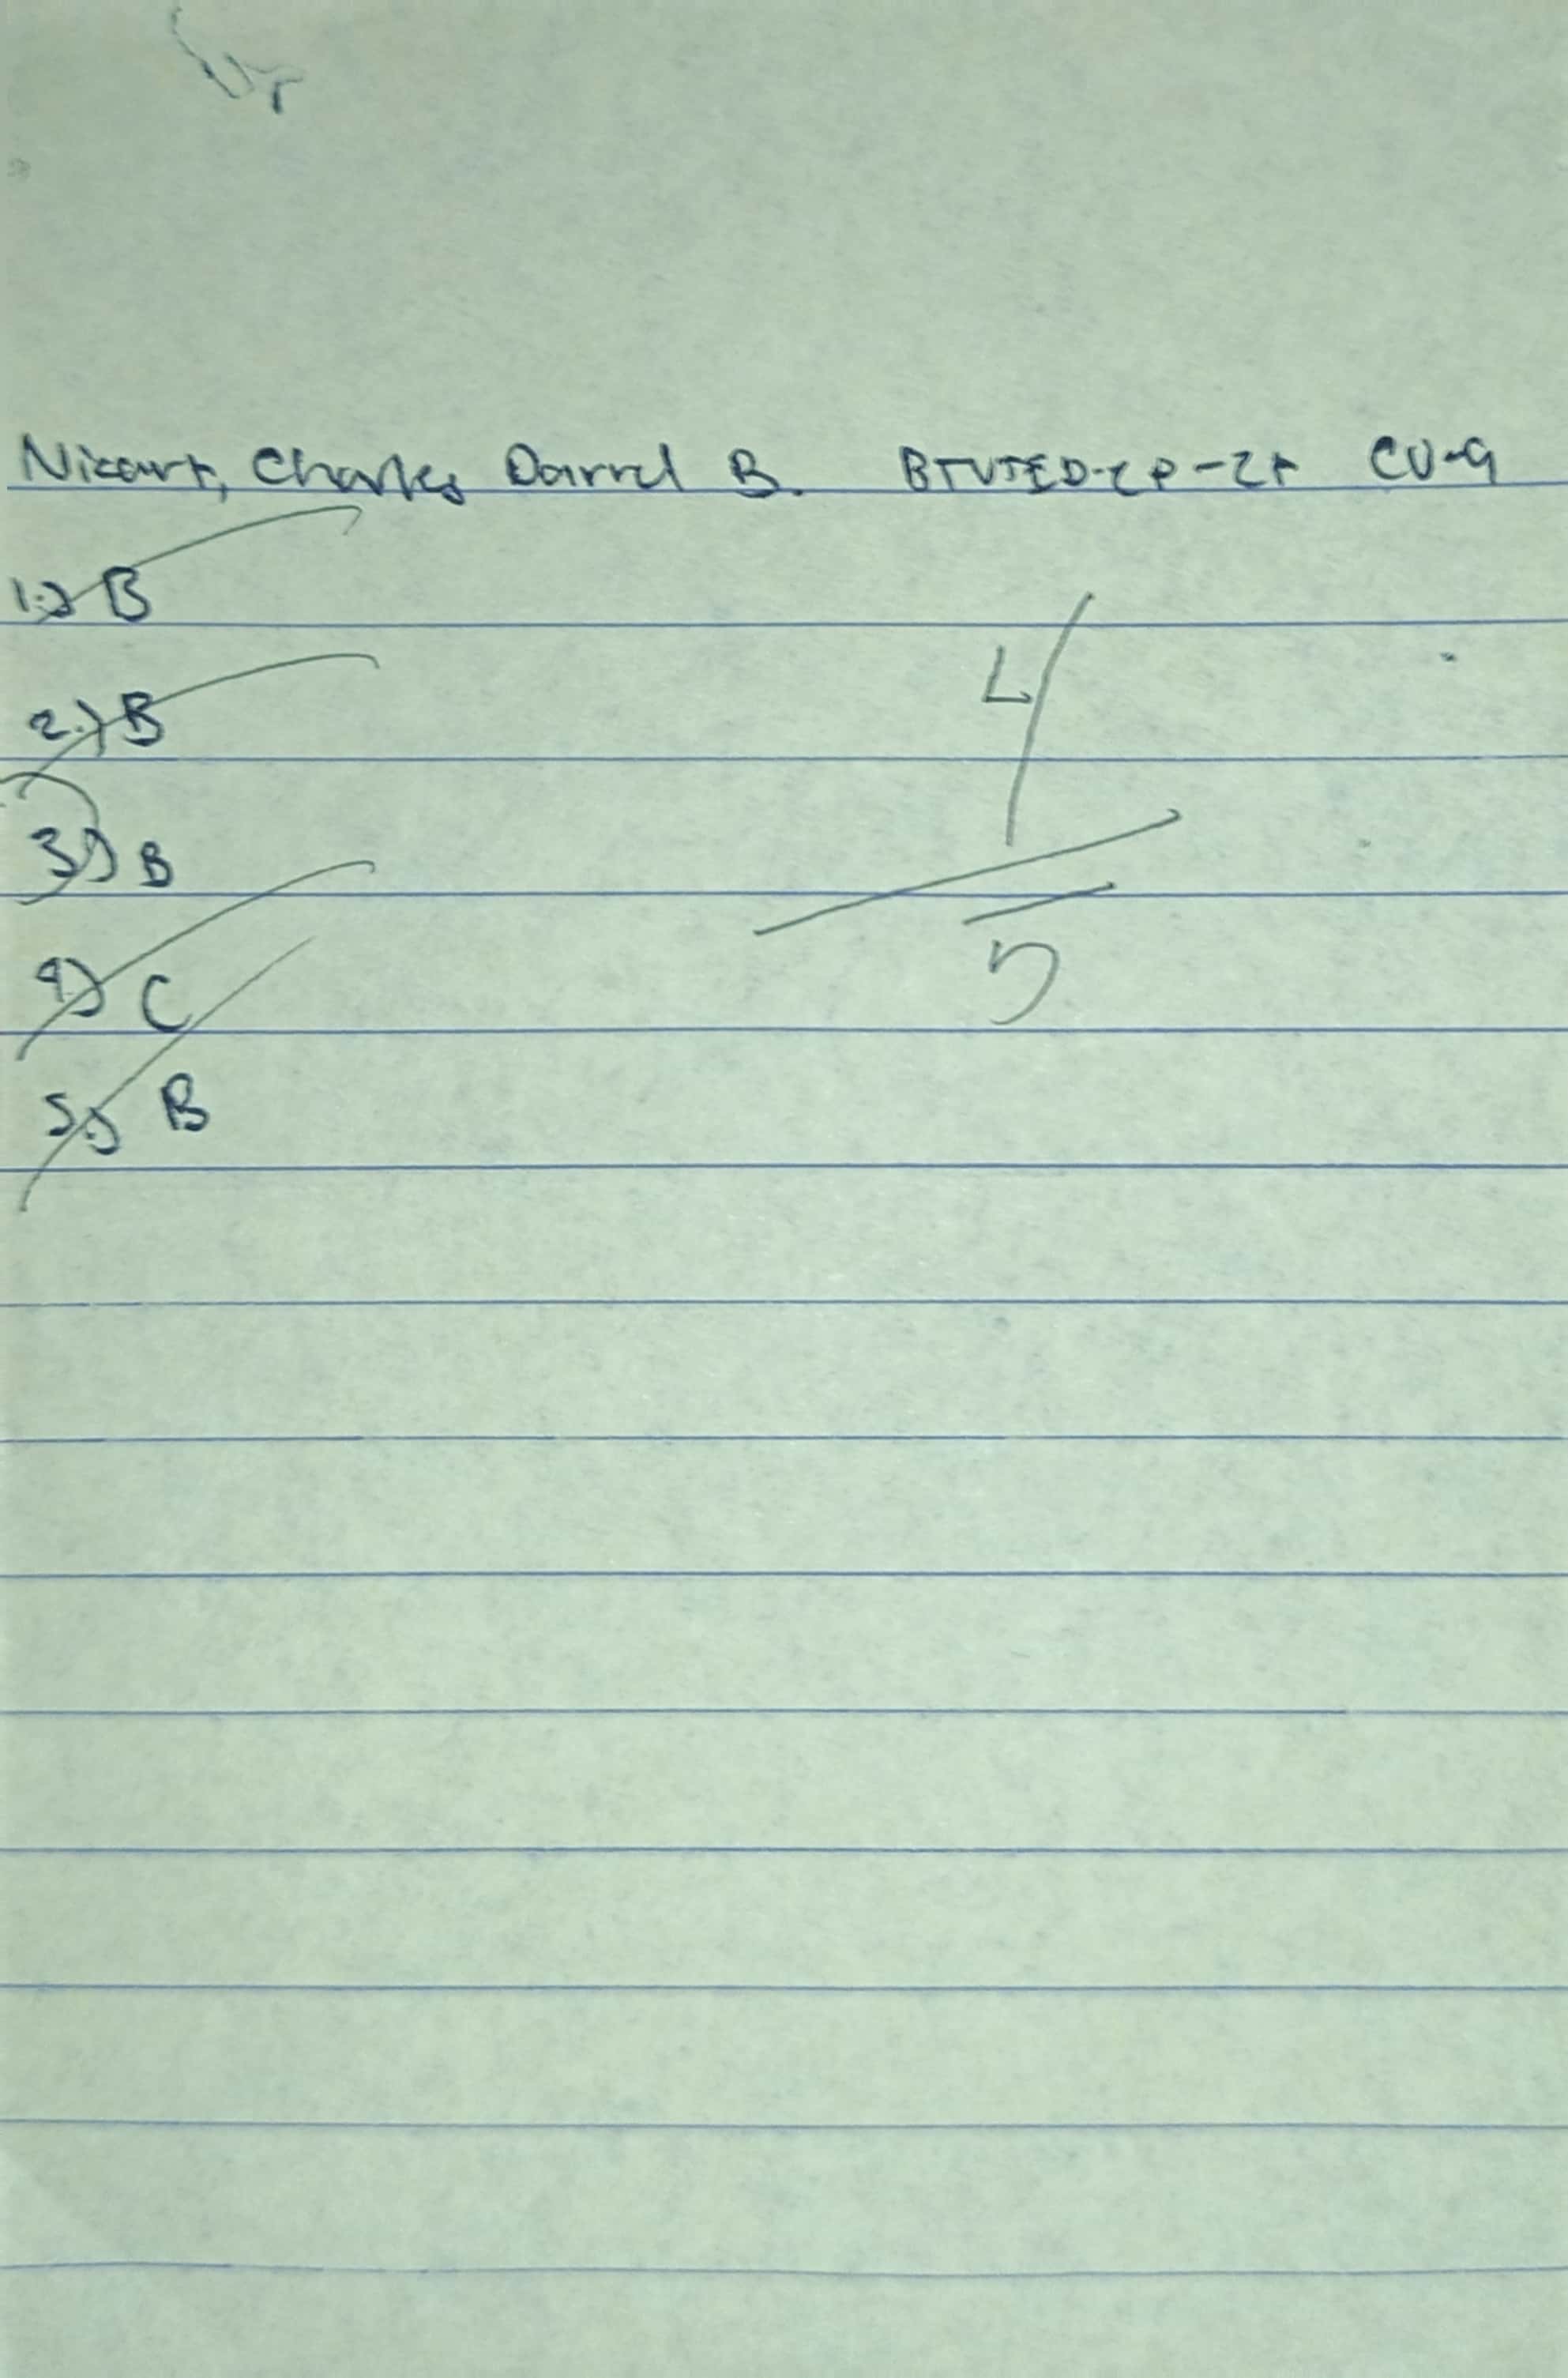 Nicart, Charles Darrel B. BTVTED-CP-2A CU-9
1.) B
2.) B
3.) B
4.) C
5.) B
4
5